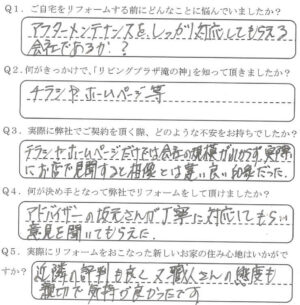 Q1. ご自宅をリフォームする前にどんなことに悩んでいましたか?
アフターメンテナンスを、しっかり対応してもらえる
会社であるか?
Q2. 何がきっかけで、「リビングプラザ滝の神」を知って頂きましたか?
チラシヤホームページ等
Q3. 実際に弊社でご契約を頂く際、どのような不安をお持ちでしたか?
チラシヤホームページだけでは会社の規模が分からず、実際
にお店で見聞すると想像とは違い良い印象だった。
Q4. 何が決め手となって弊社でリフォームをして頂けましたか?
アドバイザーの坂元さんが丁寧に対応してもらい
意見を聞いてもらえた.
Q5. 実際にリフォームをおこなった新しいお家の住み心地はいかがで
すか?
近隣の評判も良く又職人さんの態度も
親切で気持が良かったです